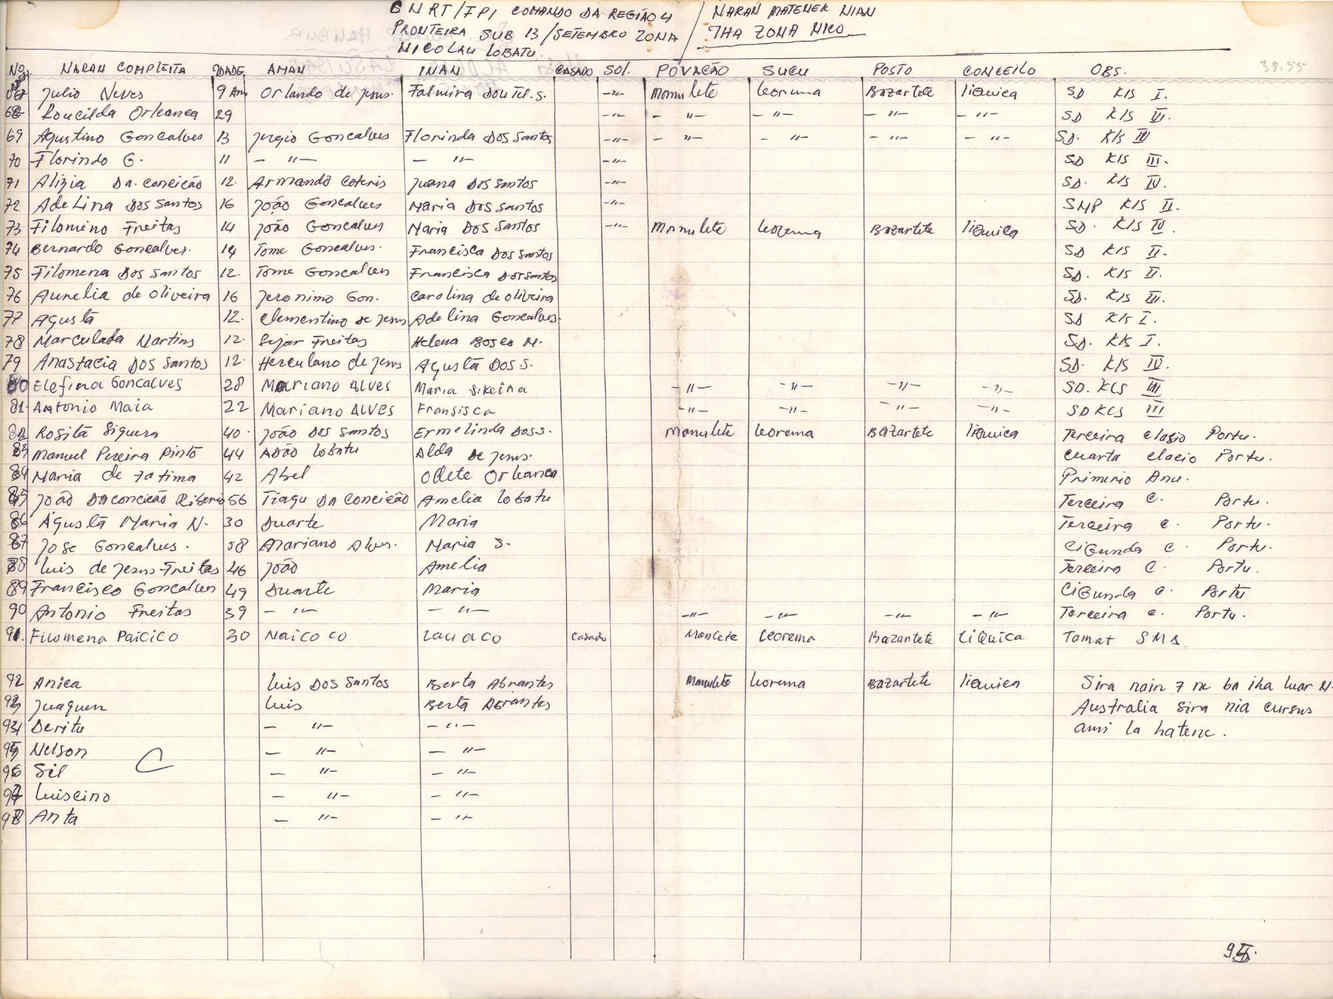 CNRT/FPI COMANDO DA REGIÃO 4 / NARAN MATENEK NIAN
FRONTEIRA SUB 13/SETEMBRO ZONA / IHA ZONA NICO
NICOLAU LOBATU
No. NARAN COMPLEITA IDADE AMAN INAN CASADO SOL. POVAÇÃO SUCU POSTO CONCEILO OBS. 38.55
Julio Neves 9 Anu Orlando de jesus. Falmira Dou Tel.s. -"- Manulete Leorema Bazartete liquica SD KIS I.
68 Loucilda Orleanca 29 -"- - "- - "- - "- - "- SD KIS III.
69 Agustino Goncalves 13 Jergio Goncalves Florinda Dos Santos -"- - "- - "- - "- - "- SD. KIS IV
70 Florindo G. 11 - "- - "- -"- SD KIS III.
71 Alizia Da. conceição 12. Armando Coteris Juana Dos Santos -"- SD. KIS IV.
72 Adelina Dos Santos 16 João Goncalves Maria Dos Santos -"- SMP KIS II.
73 Filomino Freitas 14 João Goncalves Maria Dos Santos -"- Manulete Leorema Bazartete liquica SD. KIS IV
74 Bernardo Goncalves. 14 Tome Goncalves. Francisca Dos Santos SD KIS II.
75 Filomena Dos Santos 12. Tome Goncalves Francisca Dos Santos SD. KIS II.
76 Aurelia de Oliveira 16 Jeronimo Gon. Carolina de Oliveira SD. KIS III.
77 Agusta 12. Clementino de Jesus Adelina Goncalves. SD KIS I.
78 Marculada Martins 12. Sejar Freitas Helena Bosco M. SD. KIS I.
79 Anastacia Dos Santos 12. Herculano de jesus Agusta Dos S. SD. KIS IV.
80 Elefina Goncalves 28 Mariano ALVES Maria Sikeira -"- -"- -"- -"- SD. KLS III
81. Antonio Maia 22 Mariano ALVES Fransisca -"- -"- -"- -"- SD KLS III
82 Rosita Siquera 40. João Dos Santos Ermelinda Dos.s. Manulete Leorema Bazartete liquica Terceira Clasio Portu.
83 Manuel Pereira Pinto 44 Adão Lobatu Alda De Jesus. Cuarta Clacio Portu.
84 Maria de Fatima 42 Abel Odete Orleanca Primerio Anu.
85 João Daconceicão Riberio 56 Tiagu Da Conceição Amelia Lobatu Terceira C. Portu.
86 Agusta Maria N. 30 Duarte Maria Terceira C. Portu.
87 Jose Goncalves. 58 Mariano Alves. Maria S. CiGunda C. Portu.
88 Luis de Jesus-Freitas 46 João Amelia Terceira C. Portu.
89 Francisco Goncalves 49 Duarte Maria CiGunda C. Portu
90 Antonio Freitas 39 - "- - "- -"- -"- -"- -"- Terceira C. Portu.
91. Filomena Paicico 30 Naicoco Lauaco Casado Manlete Leorema Bazartete LiQuica Tomat SMA
92 Anica Luis Dos Santos Berta Abrantes Manulete Leorema Bazartete liquica Sira nain 7 ne ba iha luar N.
93 Juaquin Luis Berta Abrantes Australia Sira nia cursus
94 Deritu - "- - "- ami la hatene.
95 Nelson - "- - "-
96 Sil - "- - "-
97 Luiscino - "- - "-
98 Anta - "- - "-